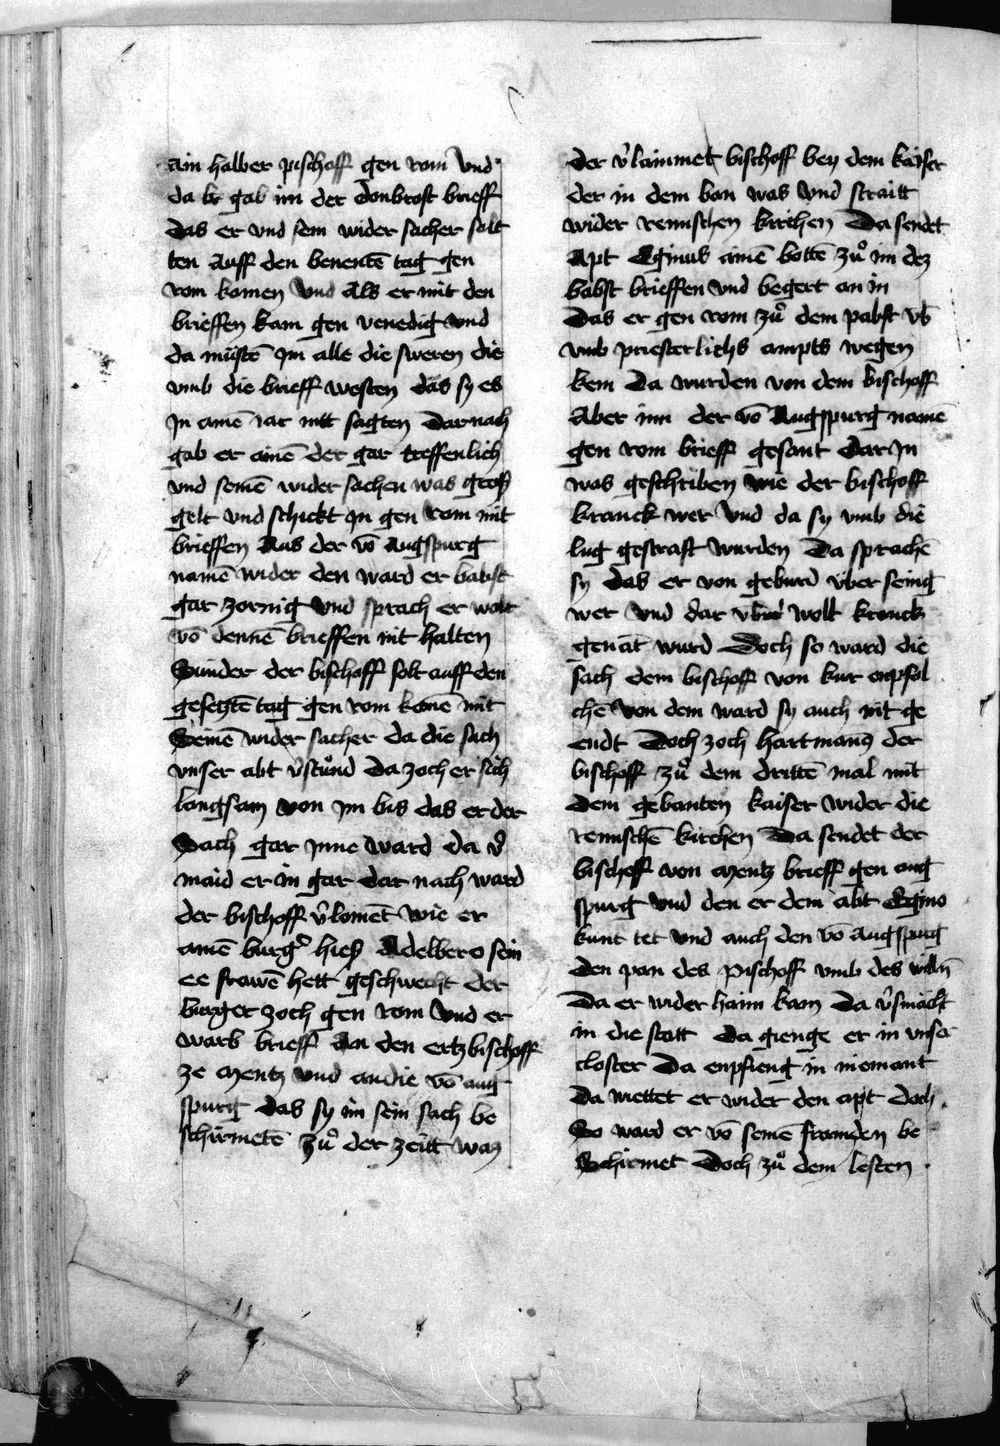 ain halber pischoff gen rom vnd
da er gab im der donbrost brieff
das er vnd sein wider sacher solt
ten auff den benentē tag gen
rom komen vnd als er mit den
brieffen kam gen venedig vnd
da müstē jm alle die sweren die
vmb die brieff westen das sy es
jn ainē iar nitt sagten Darnach
gab er ainē der gar treffenlich
vnd seinē wider sachen was groß
gelt vnd schickt jn gen rom mit
brieffen Aus der vō Augspurg
namē wider den ward er babst
gar zornig vnd sprach er wolt
vō dennē brieffen nit halten
Sunder der bischoff solt auff den
gesetztē tag gen rom komē mit
Seinē wider sacher da die sach
vnser abt v̓stůnd da zoch er sich
langsam von jm bis das er der
Sach gar jnne ward da v̓
maid er in gar dar nach ward
der bischoff v̓lomēt wie er
ainē burg̓ hieß Adelbero sein
ee frawē hett geschwecht der
burger zoch gen rom vnd er
warb brieff An den ertzbischoff
ze mentz vnd an die vō aug
spurg das sy im sein sach be
schirmetē zů der zeitt waz
der v̓laimmet bischoff bey dem kaiser
der in dem ban was vnd straitt
wider remischen kirchen Da sendet
Apt Eginus ainē bottē zů im dez
babst brieffen vnd begert an in
Das er gen rom zů dem pabst
vmb priesterlichs ampts wegen
kem Da wurden von dem bischoff
Aber inn der vō Augspurg namē
gen rom brieff gesant Dar jn
was geschriben wie der bischoff
kranck wer vnd da sy vmb die
lug gestraft wurden Da sprachē
sy das er von geburd vber seinig
wer vnd dar wolt kranck
genāt wurd Doch so ward die
sach dem bischoff von kur enpfol
chē von dem ward sy auch nit ge
endt Doch zoch hartmanq der
bischoff zů dem drittē mal mit
dem gebanten kaiser wider die
remischē kirchen Da sendet der
bischoff von mentz brieff gen aug
spurg vnd den er dem abt Egino
kunt tet vnd auch den vō Augspurg
den pan des pischoff vmb des willn̄
Da er wider haim kam da v̓smācht
in die statt da gienge er in vnser
closter Da enpfieng in niemant
Da wettet er wider den apt doch
So ward er vō seinē framden be
Schirmet Doch zů dem lesten